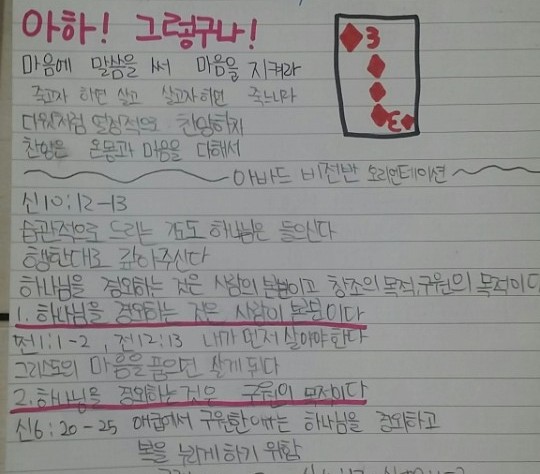 아하! 그렇구나!
3
3
마음에 말씀을 써 마음을 지켜라
죽고자 하면 살고 살고자하면 죽느니라
다윗처럼 열정적으로 찬양하자
찬양은 온몸과 마음을 다해서
아바드 비전반 오리엔테이션
신10:12-13
습관적으로 드리는 기도도 하나님은 들으신다
행한대로 갚아주신다
하나님을 경외하는 것은 사람의 본분이고 창조의 목적,구원의 목적이다
1. 하나님을 경외하는 것은 사람의 본분이다
전1:1-2, 전12:13 내가 먼저 살아야한다
그리스도의 마음을 품으면 살게 된다
2. 하나님을 경외하는 것은 구원의 목적이다
신6:20-25 애굽에서 구원한 이유는 하나님을 경외하고
복을 누리게하기 위함